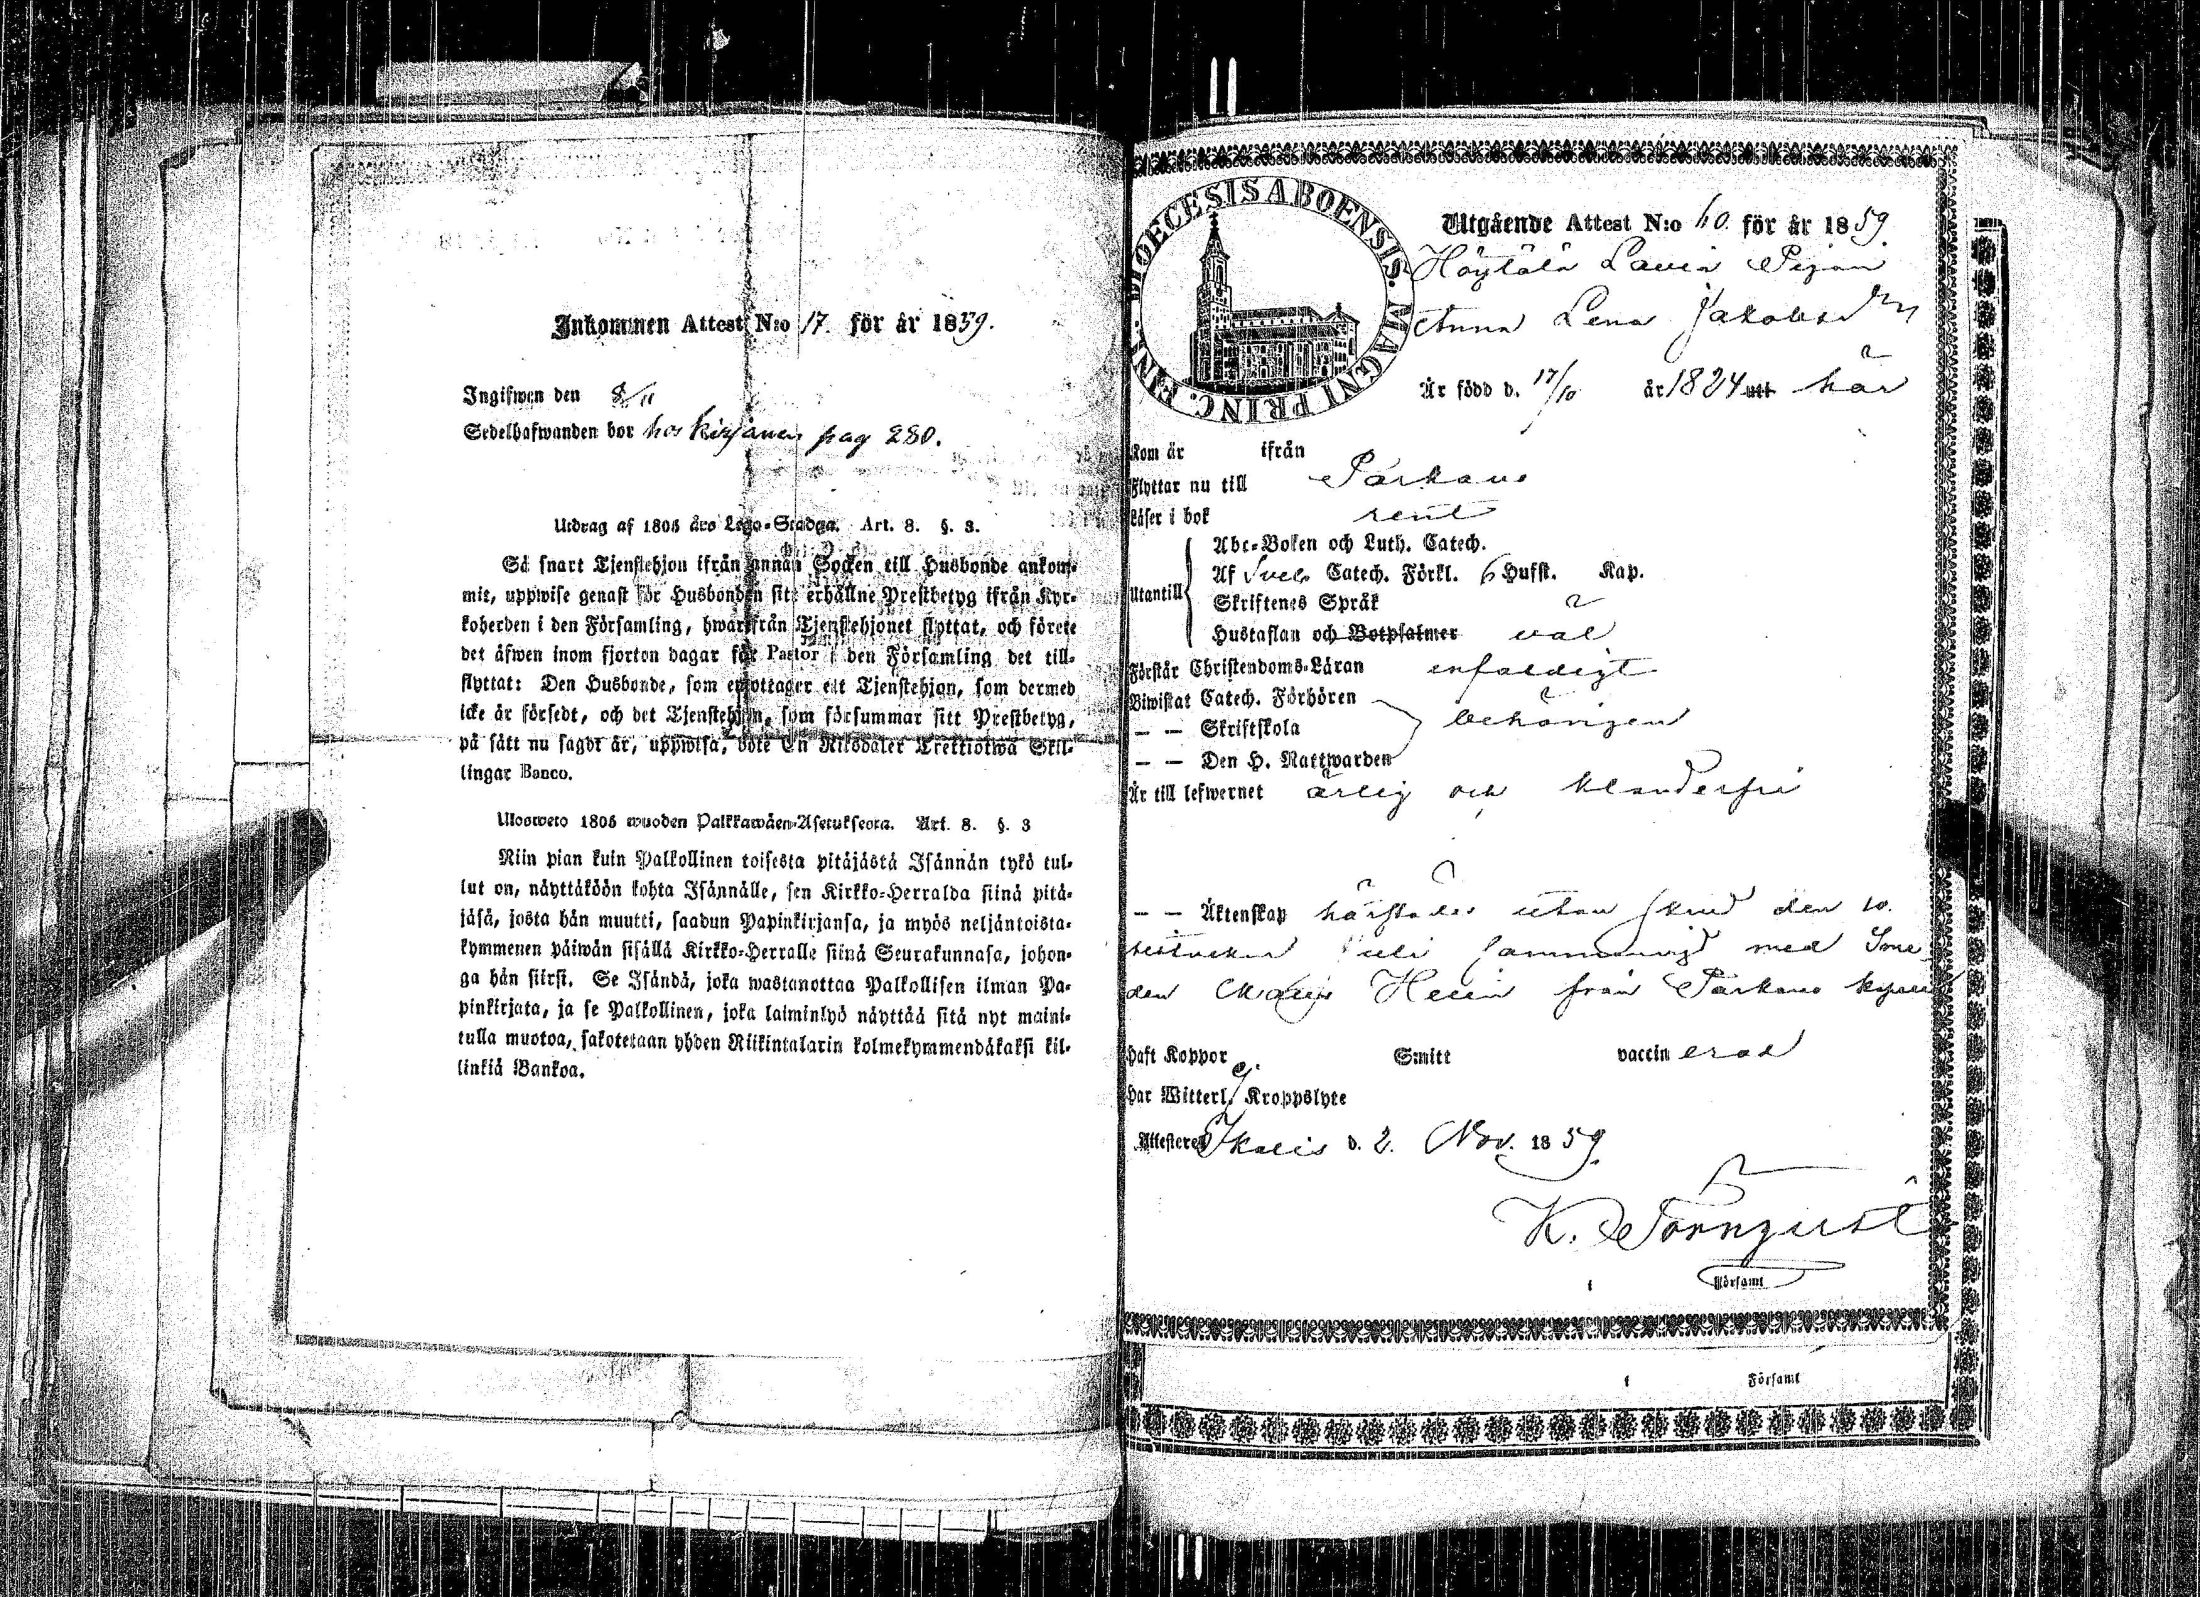 Inkommen Attest N:o 17. för år 1859.
Ingifwen den 8/11
Sedelhafwanden bor hos Kirjanen pag 280.
Utdrag af 1805 års Lego-Stadga. Art. 8. §. 3.
Så snart Tjenstehjon ifrån annan Socken till Husbonde ankom-
mit, uppwise genast för Husbonden sitt erhållne Prestbetyg ifrån Kyr-
koherden i den Församling, hwarifrån Tjenstehjonet flyttat, och förete
det äfwen inom fjorton dagar för Pastor i den Församling det till-
flyttat: Den Husbonde, som emottager ett Tjenstehjon, som dermed
icke är försedt, och det Tjenstehjon, som försummar sitt Prestbetyg,
på sätt nu sagdt är, uppwisa, böte En Riksdaler Trettiotwå Skil-
lingar Banco.
Ulosweto 1805 wuoden Palkkawäen-Asetuksesta. Art. 8. §. 3
Niin pian kuin Palkollinen toisesta pitäjästä Isännän tykö tul-
lut on, näyttäköön kohta Isännälle, sen Kirkko-Herralda siinä pitä-
jäsä, josta hän muutti, saadun Papinkirjansa, ja myös neljäntoista-
kymmenen päiwän sisällä Kirkko-Herralle siinä Seurakunnasa, johon-
ga hän siirsi. Se Isändä, joka wastanottaa Palkollisen ilman Pa-
pinkirjata, ja se Palkollinen, joka laiminlyö näyttää sitä nyt maini-
tulla muotoa, sakotetaan yhden Riikintalarin kolmekymmendäkaksi kil-
linkiä Bankoa.
DIOECESIS ABOENSIS. MAGNI PRINC. FINL.
Utgående Attest N:o 60. för år 1859.
Höytälä Pigan
Anna Lena Jakobsd:r
Är född d. 17/10 år 1824 utt här
Kom år ifrån
Flyttar nu till Parkano
Läser i bok rent
Utantill
Abc-Boken och Luth. Catech.
Af Sveb. Catech. Förkl. 6 Hufst. Kap.
Skriftenes Språk
Hustaflan och Botpsalmer väl
Förstår Christendoms-Läran enfaldigt
Biwistat Catech. Förhören
— — Skriftskola behörigen
— — Den H. Nattwarden
Är till lefwernet ärlig och klanderfri
— — Äktenskap härstädes utan den 10.
med Sme-
den Heliin från Parkano
Haft Koppor Smitt vaccinerad
Har Witterl. ej Kroppslyte
Attesteras Ikalis d. 2. Nov. 1859.
K. Törnqvist
i Församl
i Församl